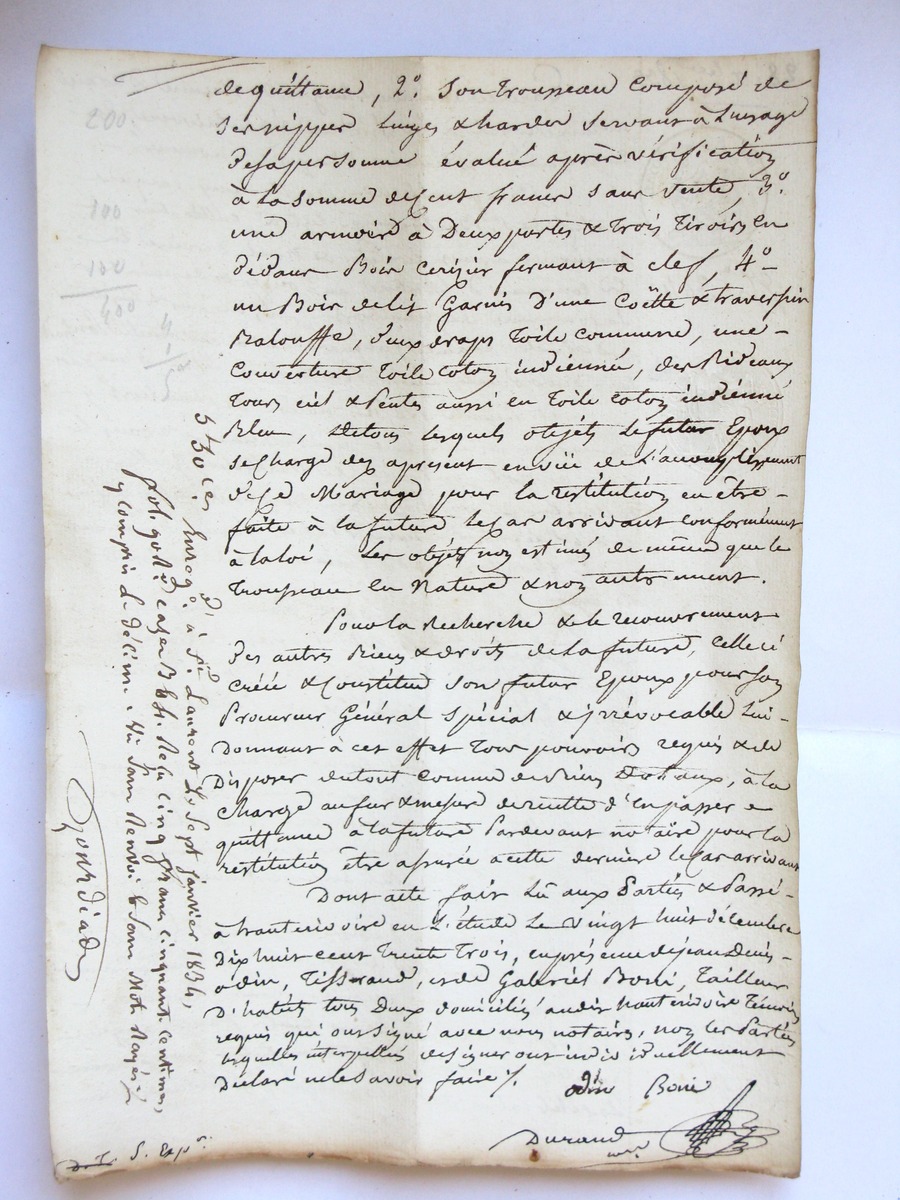 de quittance, 2° Son trousseau Composé de
ses nippes Linges & hardes servant à L'usage
de sa personne évalué après vérification
à la somme de Cent francs sans vente, 3°
une armoire à Deux portes & trois Tiroirs en
dedans Bois Cerisier fermant à clef, 4°
un Bois de lit Garnis D'une Coëtte & traverspin
Balouffe, deux draps Toile Commune, une
Couverture Toile Coton indienne, des Rideaux
tours ciel & Pentes aussi en Toile Coton indienne
Bleu, De tous lesquels objets Le futur Epoux
se Charge dez apresent en vüe de L'accomplissement
de Ce Mariage pour la restitution en être
faite à la future le Cas arrivant Conformément
à la loi, Les objets non estimés de même que le
Trousseau en Nature & non autrement.
Pour la Recherche & le recouvrement
des autres Biens & droits de La future, Celle ci
Créée & Constitue Son futur Epoux pour son
Procureur Général Spécial & irrévocable Lui
Donnant à cet effet Tous pouvoirs requis & de
Disposer du tout Comme de Biens Dotaux, à la
Charge au fur & mesure de recette d'en passer
quittance à la future Pardevant notaire pour la
restitution être assurée à cette dernière le Cas arrivant
Dont acte fait Lû aux Parties & Passé
à hauterivoire en L'étude Le vingt huit décembre
Dix huit cent trente Trois, en présence de jean Denis
odin, Tisserand, et de Gabriel Boni, Tailleur
D'habits tous Deux domiciliés audit hauterivoire Témoins
requis qui ont Signé avec nous notaires, non les Parties
lesquelles interpellées de signer ont individuellement
Déclaré ne le Savoir faire ./.
odin Boni
Durand
nre
200.
100
100
400
5f 50 ces Enreg. à St. Laurent Le Sept janvier 1834,
fol. 90 Rd. Cases 3 & 4. Reçu Cinq francs Cinquante Centimes,
y Compris Le décime. Sans Renvoi & Sans Mot Rayé.
S. Expon.